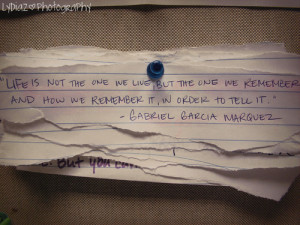 Lydiazo Photography
"LIFE IS NOT THE ONE WE LIVE, BUT THE ONE WE REMEMBER
AND HOW WE REMEMBER IT, IN ORDER TO TELL IT."
- GABRIEL GARCIA MARQUEZ
But you